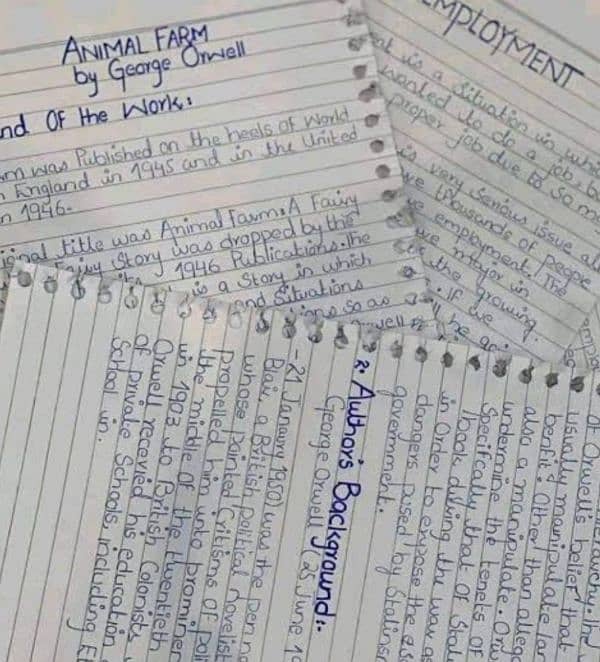 ANIMAL FARM
by George Orwell
nd Of the Work:
m was Published on the heels of World
England in 1945 and in the United
n 1946.
title was Animal Farm: A Fairy
Fairy Story was dropped by the
1946 Publications. The
is a Story in which
and Situations
so as
MPLOYMENT
is a Situation in whic
wanted to do a job, b
proper job due to some
is very serious issue al
thousands of people
employment. The
major in
the growing
. If we
2. Author's Background:-
George Orwell (25 June 19
-21 Janaury 1950) was the pen na
Blair, a British political novelist
whose pointed Critisms of poli
Propelled him unto prominen
the middle of the twentieth
in 1903 to British Colonists,
Orwell recevied his education
of private Schools, including Et
School in.
of Orwell's belief that
Usually manipulate lar
benfit. Other than alleg
also a manipulate. Orw
undermine the tenets of
Specifcally that of Stal
book during the war as
in Order to expose the ess
dangers posed by Stalinsm
government.